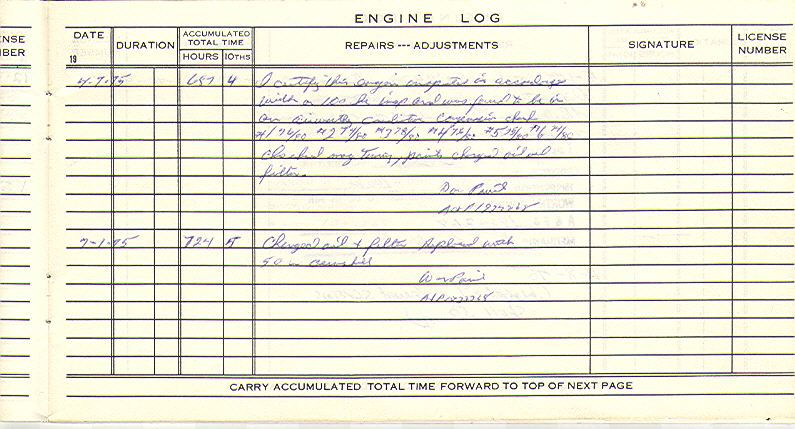 ENGINE LOG
NSE
BER
DATE
19
DURATION
ACCUMULATED
TOTAL TIME
HOURS
10THS
REPAIRS --- ADJUSTMENTS
SIGNATURE
LICENSE
NUMBER
4-7-75 687 4 I certify this engine inspected in accordance
with a 100 hr insp and was found to be in
an airworthy condition compression check
#1 76/80 #2 #3 78/80 #4 78/80 #5 75/80 #6
Checked mag timing, points changed oil and
filter.
Don
A&P
7-1-75 724 changed oil & filter replaced with
50 w aeroshell
A&P
CARRY ACCUMULATED TOTAL TIME FORWARD TO TOP OF NEXT PAGE